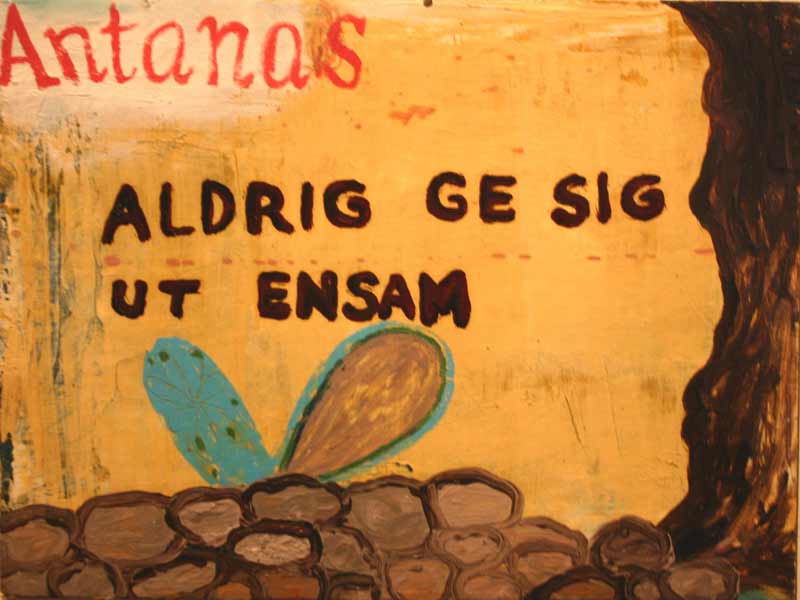 Antanas
ALDRIG GE SIG
UT ENSAM